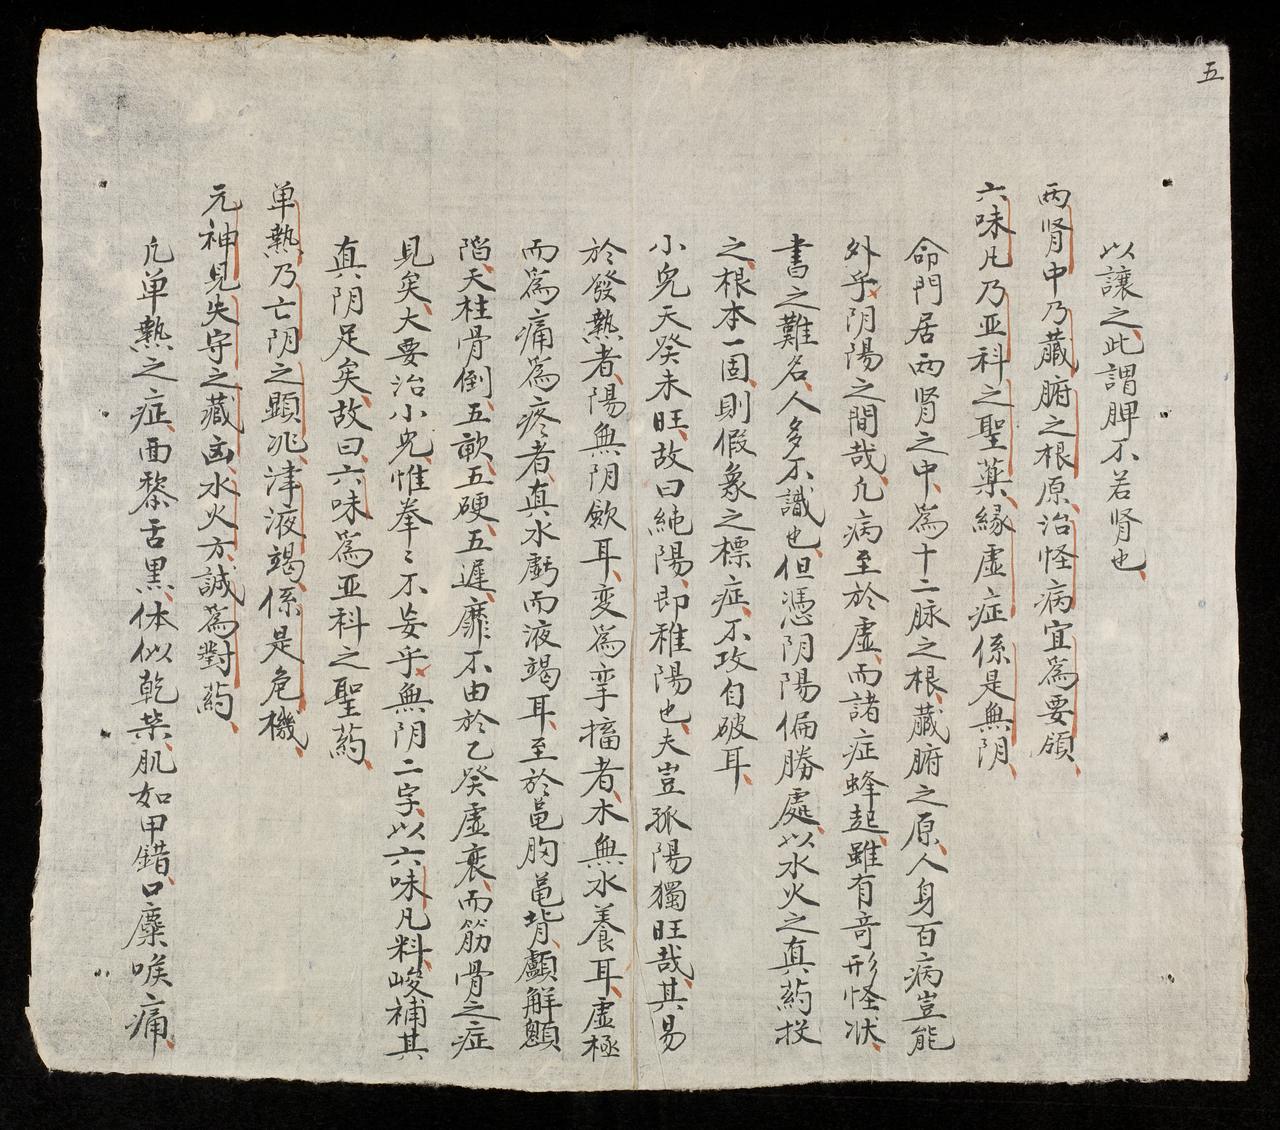 五
以讓之此謂脾不若肾也
两肾中乃藏腑之根原治怪病宜爲要領
六味凡乃亚科之聖薬縁虚症係是無阴
命門居两肾之中為十二脉之根藏腑之原人身百病豈能
外乎阴陽之間哉凢病至於虚而諸症蜂起雖有竒形怪状
書之難名人多不識也但憑阴陽偏勝處以水火之真药投
之根本一固則假象之標症不攻自破耳
小皃天癸未旺故曰純陽即稚陽也夫豈孤陽獨旺哉其易
於發熱者陽無阴歛耳变爲挛搐者木無水養耳虚極
而爲痛爲疼者真水虧而液竭耳至於黾胸黾背顱解顖
陷天柱骨倒五軟五硬五遲靡不由於乙癸虚衰而筋骨之症
見矣大要治小皃惟拳〻不妄乎無阴二字以六味凡料峻補其
真阴足矣故曰六味爲亚科之聖药
单熱乃亡阴之顕兆津液竭係是危機
元神見失守之藏凶水火方誠爲對药
凢单熱之症面黎舌黒体似乾柴肌如甲錯口麋喉痛